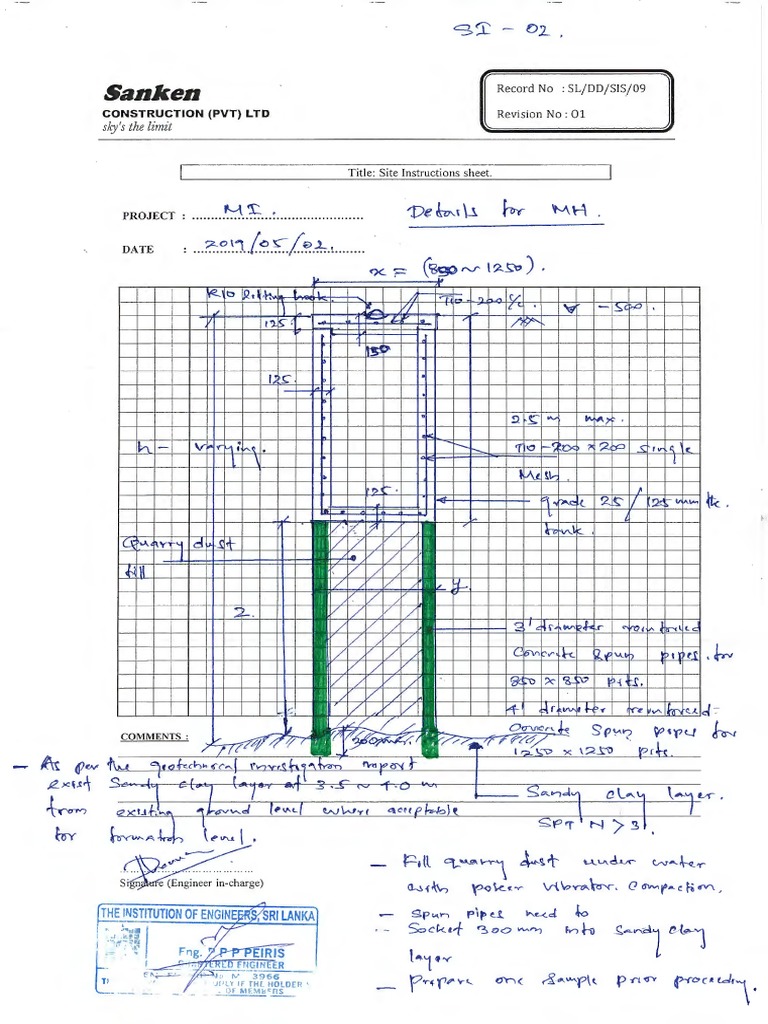 SI - 02.
Sanken
CONSTRUCTION (PVT) LTD
sky's the limit
Record No : SL/DD/SIS/09
Revision No : O1
Title: Site Instructions sheet.
PROJECT : MI.
Details for MH.
DATE : 2019/05/02.
x = (850 ~ 1250).
R10 lifting hook.
T10-200 c/c.
-500.
125
150
125.
h - varying.
2.5 m max.
T10-200 x 200 single
Mesh.
125.
grade 25 / 125mm tk.
tank.
Quarry dust
fill
y
2
3' diameter reinforced
Concrete Spun pipes for
850 x 850 pits.
4' diameter reinforced
Concrete Spun pipes for
1250 x 1250 pits.
COMMENTS :
300mm.
- As per the geotechnical investigation report
exist Sandy clay layer at 3.5 ~ 4.0 m
from existing ground level where acceptable
for formation level.
Sandy clay layer.
SPT N > 31.
Signature (Engineer in-charge)
- Fill quarry dust under water
with poker vibrator. Compaction.
- Spun pipes need to
Socket 300mm into Sandy clay
layer
- Prepare one Sample prior proceeding.
THE INSTITUTION OF ENGINEERS, SRI LANKA
Eng. P P PEIRIS
CHARTERED ENGINEER
3966
IF THE HOLDER
OF MEMBERS